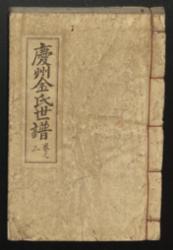 慶州金氏世譜 卷之
二